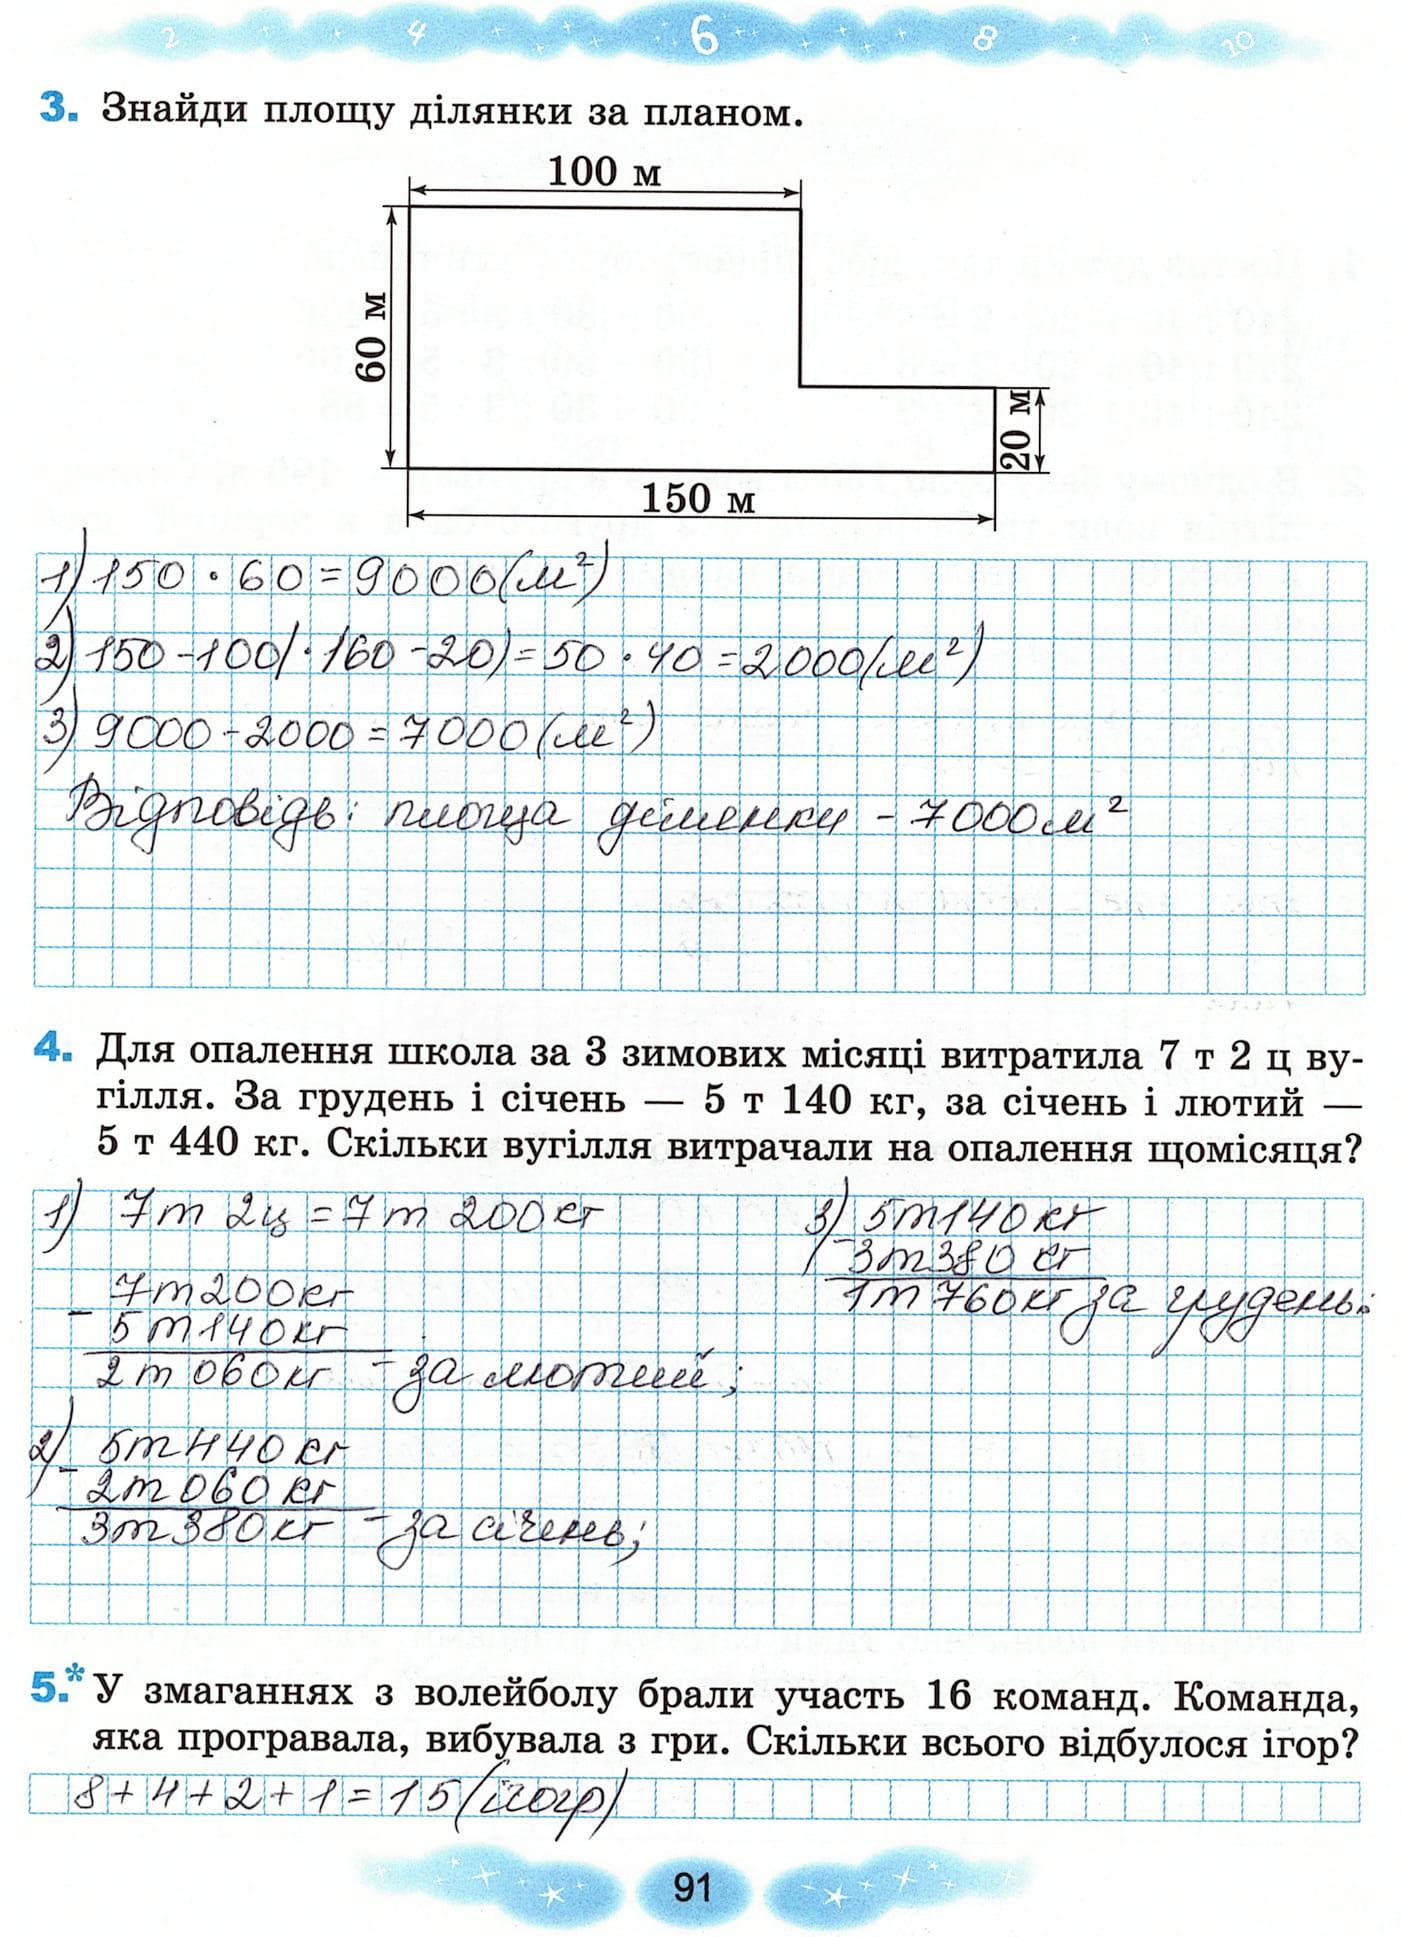 2 4 6 8 10
3. Знайди площу ділянки за планом.
100 м
60 м
20 м
150 м
1) 150 · 60 = 9000 (м²)
2) 150 - 100) · (60 - 20) = 50 · 40 = 2000 (м²)
3) 9000 - 2000 = 7000 (м²)
Відповідь: площа ділянки - 7000 м²
4. Для опалення школа за 3 зимових місяці витратила 7 т 2 ц ву-
гілля. За грудень і січень — 5 т 140 кг, за січень і лютий —
5 т 440 кг. Скільки вугілля витрачали на опалення щомісяця?
1) 7 т 2 ц = 7 т 200 кг
- 7 т 200 кг
5 т 140 кг
2 т 060 кг - за лютий;
2) - 5 т 440 кг
2 т 060 кг
3 т 380 кг - за січень;
3) - 5 т 140 кг
3 т 380 кг
1 т 760 кг за грудень.
5.* У змаганнях з волейболу брали участь 16 команд. Команда,
яка програвала, вибувала з гри. Скільки всього відбулося ігор?
8 + 4 + 2 + 1 = 15 (ігор)
91